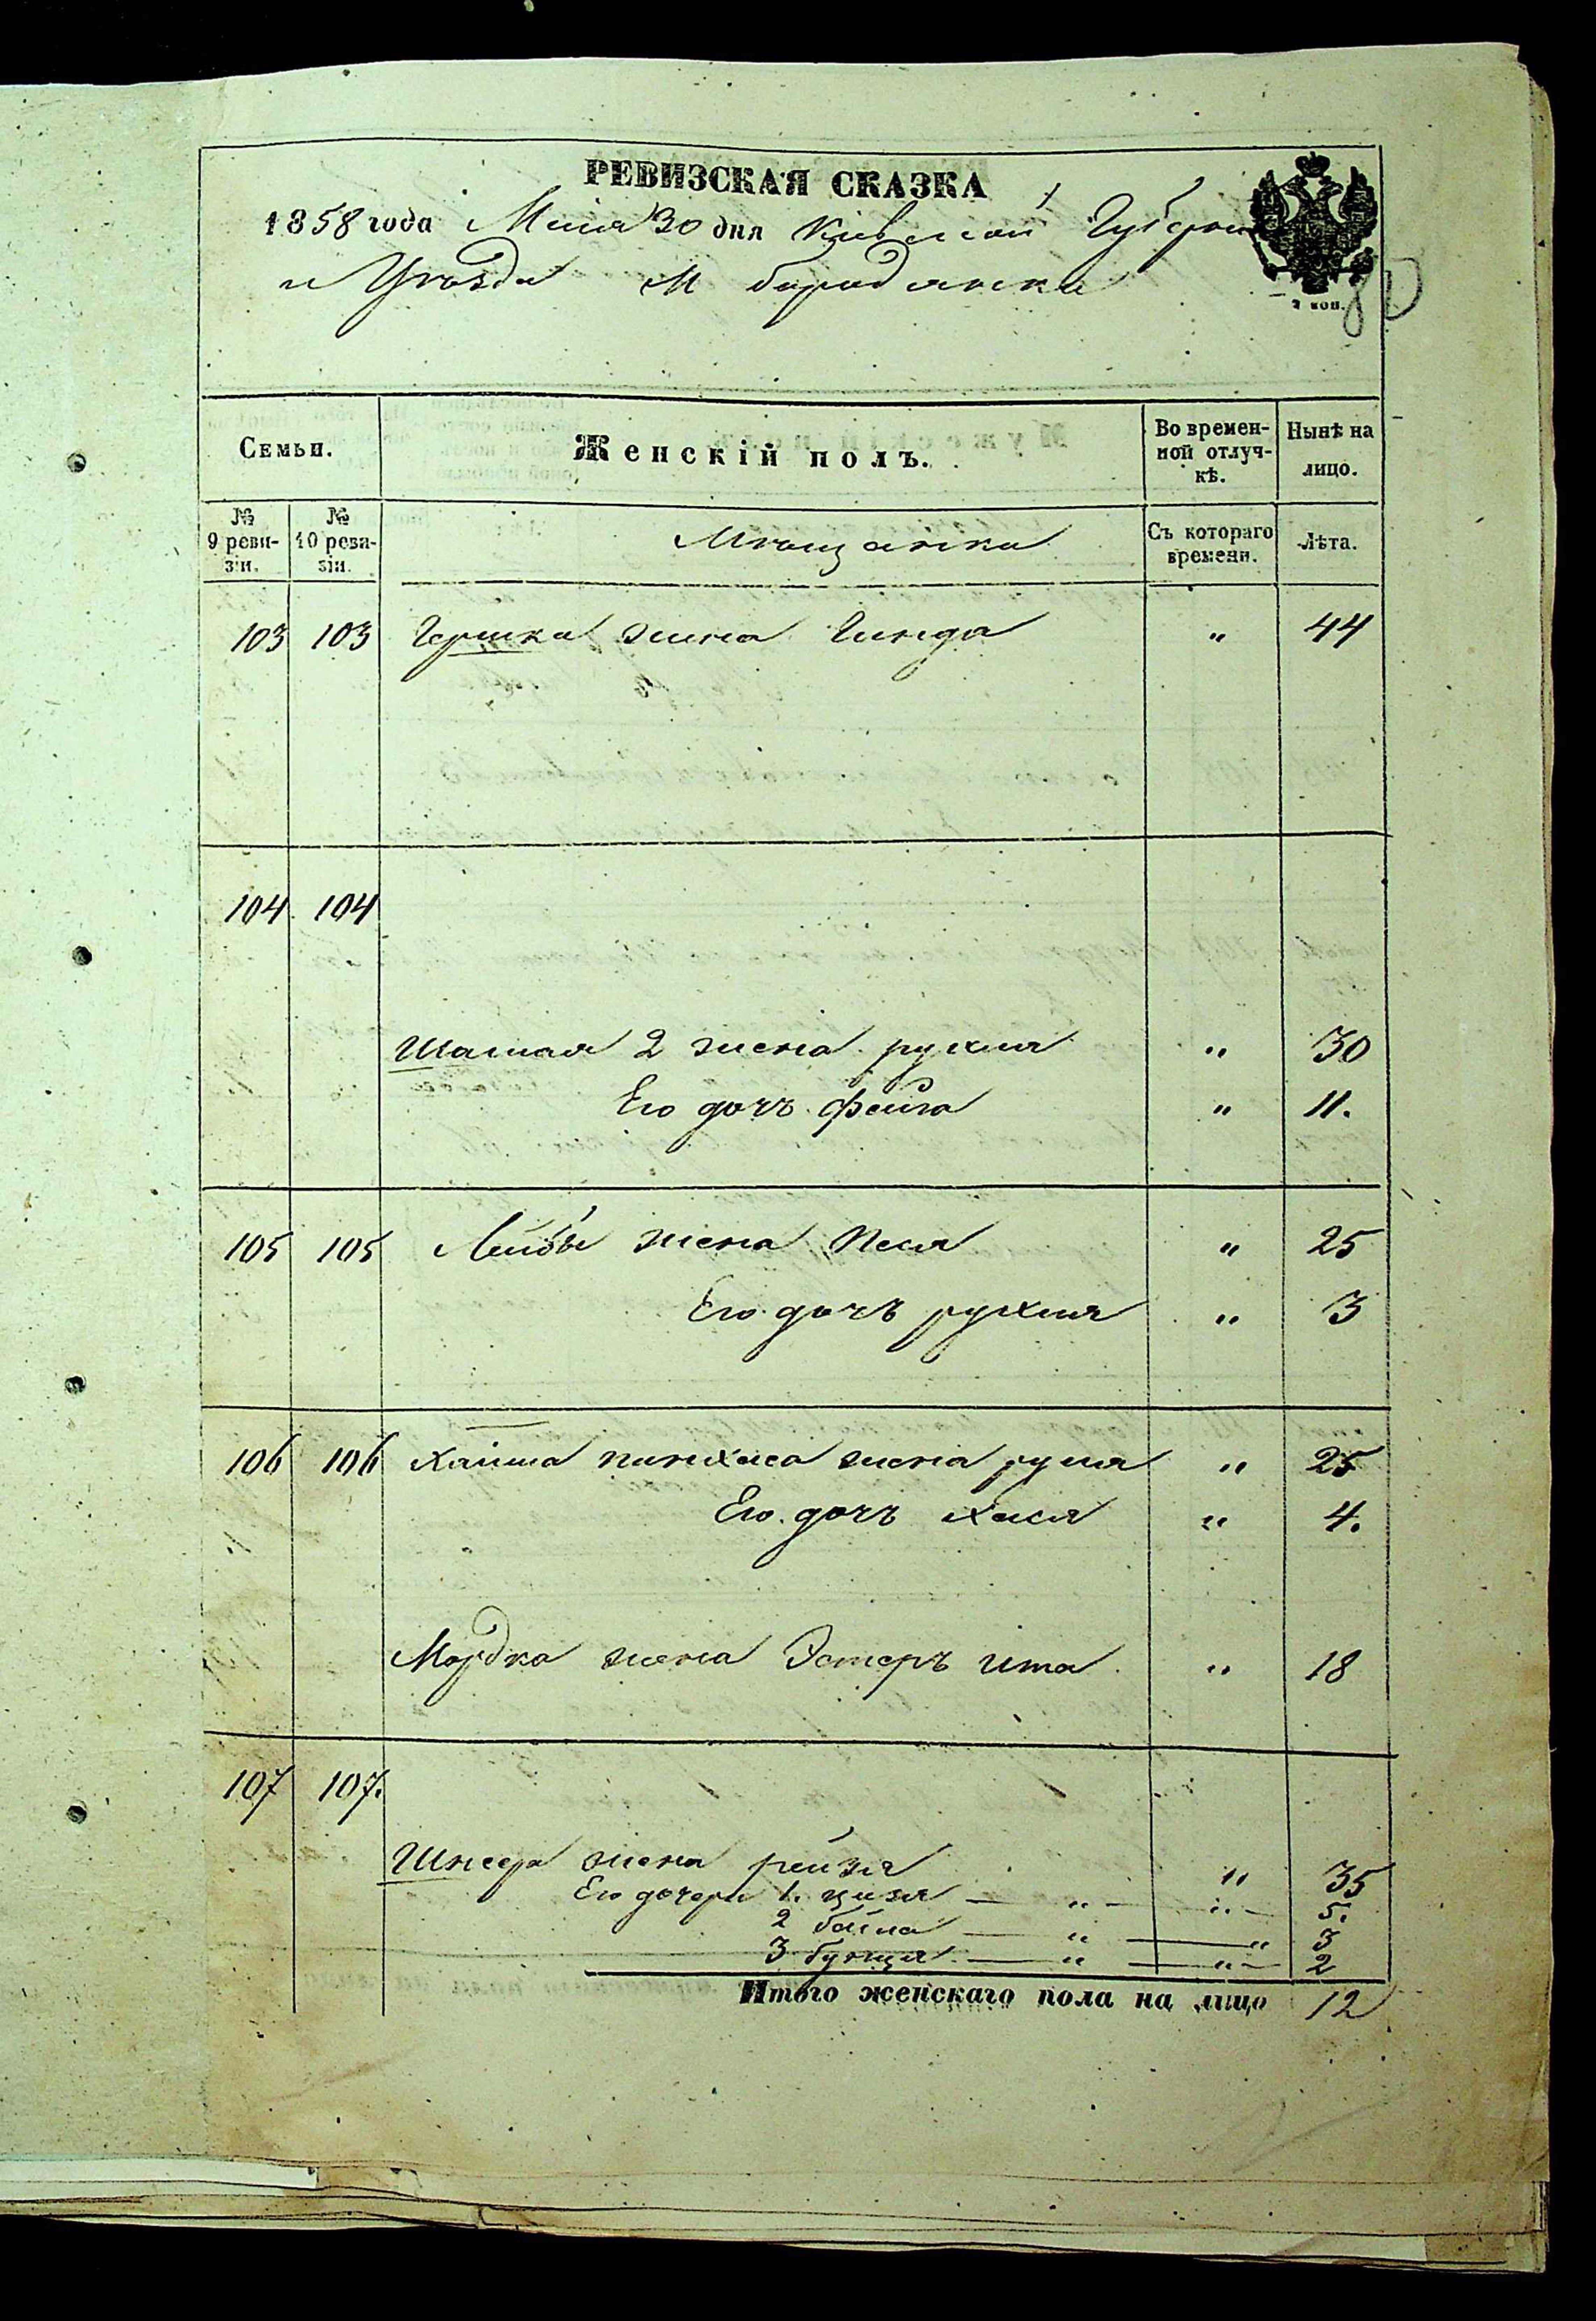 РЕВИЗСКАЯ СКАЗКА
1858 года Маія 30 дня Кіевской Губерніи
и Уѣзда М Бородянки
2 коп.
Семьи.
Женскій полъ.
Во времен-
ной отлуч-
кѣ.
Нынѣ на
лицо.
№
9 реви-
зіи.
№
10 реви-
зіи.
Мѣщанки
Съ котораго
времени.
Лѣта.
103 103 Гершка жена Гинда " 44
104 104
Шамая 2 жена рухля " 30
Его дочь Фейга " 11.
105 105 Лейбы жена Песя " 25
Его дочь рухля " 3
106 106 Хаима пинхаса жена руля " 25
Его дочь Хася " 4.
Мордка жена Эстеръ ита " 18
107 107.
Шнеера жена рейзя " 35
Его дочери 1. цизя — " — " — 5.
2 баила — " — " 3
3 бунця — " — " — 2
Итого женскаго пола на лицо 12